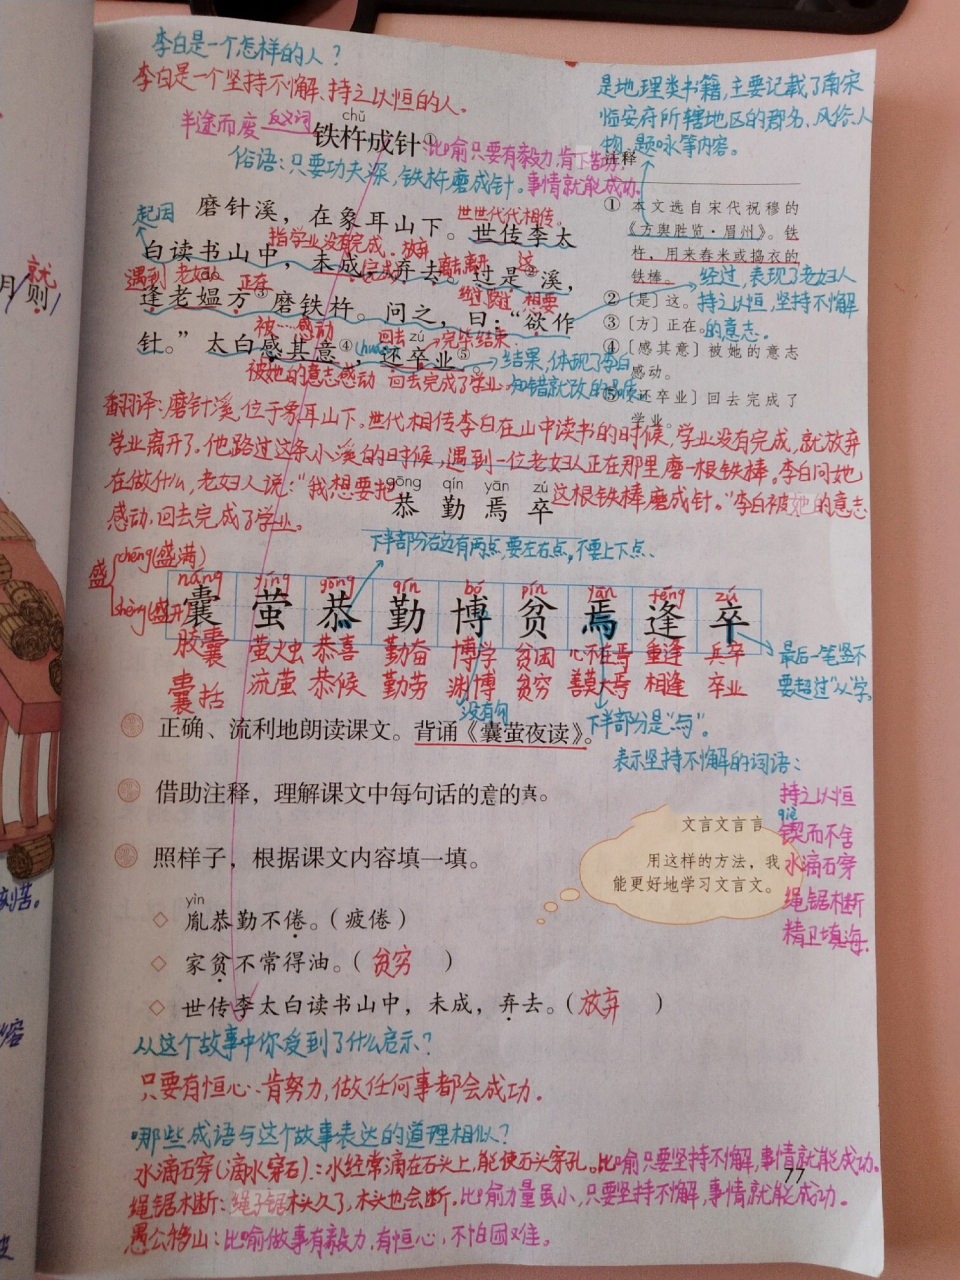 李白是一个怎样的人？
李白是一个坚持不懈、持之以恒的人。
是地理类书籍，主要记载了南宋
临安府所辖地区的郡名、风俗、人
物、题咏等内容。
半途而废 反义词
chǔ
铁杵成针①
比喻只要有毅力，肯下苦功，
事情就能成功。
俗语：只要功夫深，铁杵磨成针。
注释
起因
磨针溪，在象耳山下。世传李太
世世代代相传。
白读书山中，未成，弃去。过是②溪，
指学业没有完成。放弃
离去离开
这
逢老媪方③磨铁杵。问之，曰：“欲作
遇到 老妇人
ǎo
正在
经过 路过
想要
针。”太白感其意④，还卒业⑤。
被……感动
回去
zú
完毕结束
huán
被她的意志感动
回去完成了学业。
结果，体现了李白
知错就改的品质。
① 本文选自宋代祝穆的
《方舆胜览·眉州》。铁
杵，用来舂米或捣衣的
铁棒。
② 〔是〕这。
③ 〔方〕正在。
④ 〔感其意〕被她的意志
感动。
⑤ 〔还卒业〕回去完成了
学业。
经过，表现了老妇人
持之以恒，坚持不懈
的意志。
翻译：磨针溪，位于象耳山下。世代相传李白在山中读书的时候，学业没有完成，就放弃
学业离开了。他路过这条小溪的时候，遇到一位老妇人正在那里磨一根铁棒。李白问她
在做什么，老妇人说：“我想要把这根铁棒磨成针。”李白被她的意志
感动，回去完成了学业。
gōng qín yān zú
恭 勤 焉 卒
下半部分右边有两点，要左右点，不要上下点、
盛
chéng(盛满)
shèng(盛开)
náng yíng gōng qín bó pín yān féng zú
囊 萤 恭 勤 博 贫 焉 逢 卒
胶囊 萤火虫 恭喜 勤奋 博学 贫困 心不在焉 重逢 兵卒
囊括 流萤 恭候 勤劳 渊博 贫穷 善莫大焉 相逢 卒业
最后一笔竖不
要超过“从”字。
没有勾
下半部分是“与”。
正确、流利地朗读课文。背诵《囊萤夜读》。
表示坚持不懈的词语：
持之以恒
qiè
锲而不舍
水滴石穿
绳锯木断
精卫填海
借助注释，理解课文中每句话的意的真。
文言文言言
用这样的方法，我
能更好地学习文言文。
照样子，根据课文内容填一填。
yìn
◇ 胤恭勤不倦。（疲倦）
◇ 家贫不常得油。（贫穷）
◇ 世传李太白读书山中，未成，弃去。（放弃）
从这个故事中你受到了什么启示？
只要有恒心、肯努力，做任何事都会成功．
哪些成语与这个故事表达的道理相似？
水滴石穿(滴水穿石)：水经常滴在石头上，能使石头穿孔。比喻只要坚持不懈，事情就能成功。
77
绳锯木断：绳子锯木头久了，木头也会断．比喻力量虽小，只要坚持不懈，事情就能成功．
愚公移山：比喻做事有毅力，有恒心，不怕困难。
月则
就
刻苦。